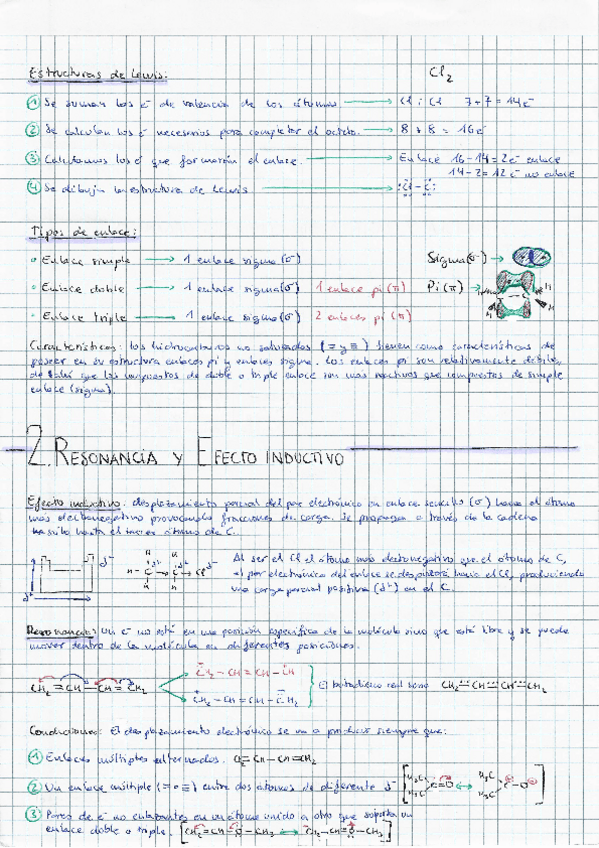 Estructuras de Lewis: Cl₂
① Se suman los e⁻ de valencia de los átomos → Cl : Cl 7+7 = 14e⁻
② Se calculan los e⁻ necesarios para completar el octeto. → 8 + 8 = 16e⁻
③ Calculamos los e⁻ que formarán el enlace. → Enlace 16-14 = 2e⁻ enlace
14-2 = 12 e⁻ no enlace
④ Se dibuja la estructura de Lewis →
Tipos de enlace:
• Enlace simple → 1 enlace sigma (σ) Sigma(σ) →
• Enlace doble → 1 enlace sigma(σ) 1 enlace pi (π) Pi (π) →
• Enlace triple → 1 enlace sigma(σ) 2 enlaces pi (π)
Características: los hidrocarburos no saturados (= y ≡) tienen como características de
poseer en su estructura enlaces pi y enlaces sigma. Los enlaces pi son relativamente débiles,
de que los compuestos de doble o triple enlace son más reactivos que compuestos de simple
enlace (sigma).
2. RESONANCIA Y EFECTO INDUCTIVO
Efecto inductivo: desplazamiento parcial del par electrónico en enlace sencillo (σ) hacia el átomo
más electronegativo provocando fracciones de carga. Se propaga a través de la cadena
hasta el tercer átomo de C.
Al ser el Cl el átomo más electronegativo que el átomo de C,
el par electrónico del enlace se desplazará hacia el Cl, produciendo
una carga parcial positiva (δ⁺) en el C.
Resonancia: Un e⁻ no está en una posición específica de la molécula sino que está libre y se puede
mover dentro de la molécula en diferentes posiciones.
CH₂ = CH — CH = CH₂
El butadieno real sería
Condiciones: El desplazamiento electrónico se va a producir siempre que:
① Enlaces múltiples alternados.
② Un enlace múltiple (= o ≡) entre dos átomos de diferente δ⁻
③ Pares de e⁻ no enlazantes en un átomo unido a otro que soporta un
enlace doble o triple.